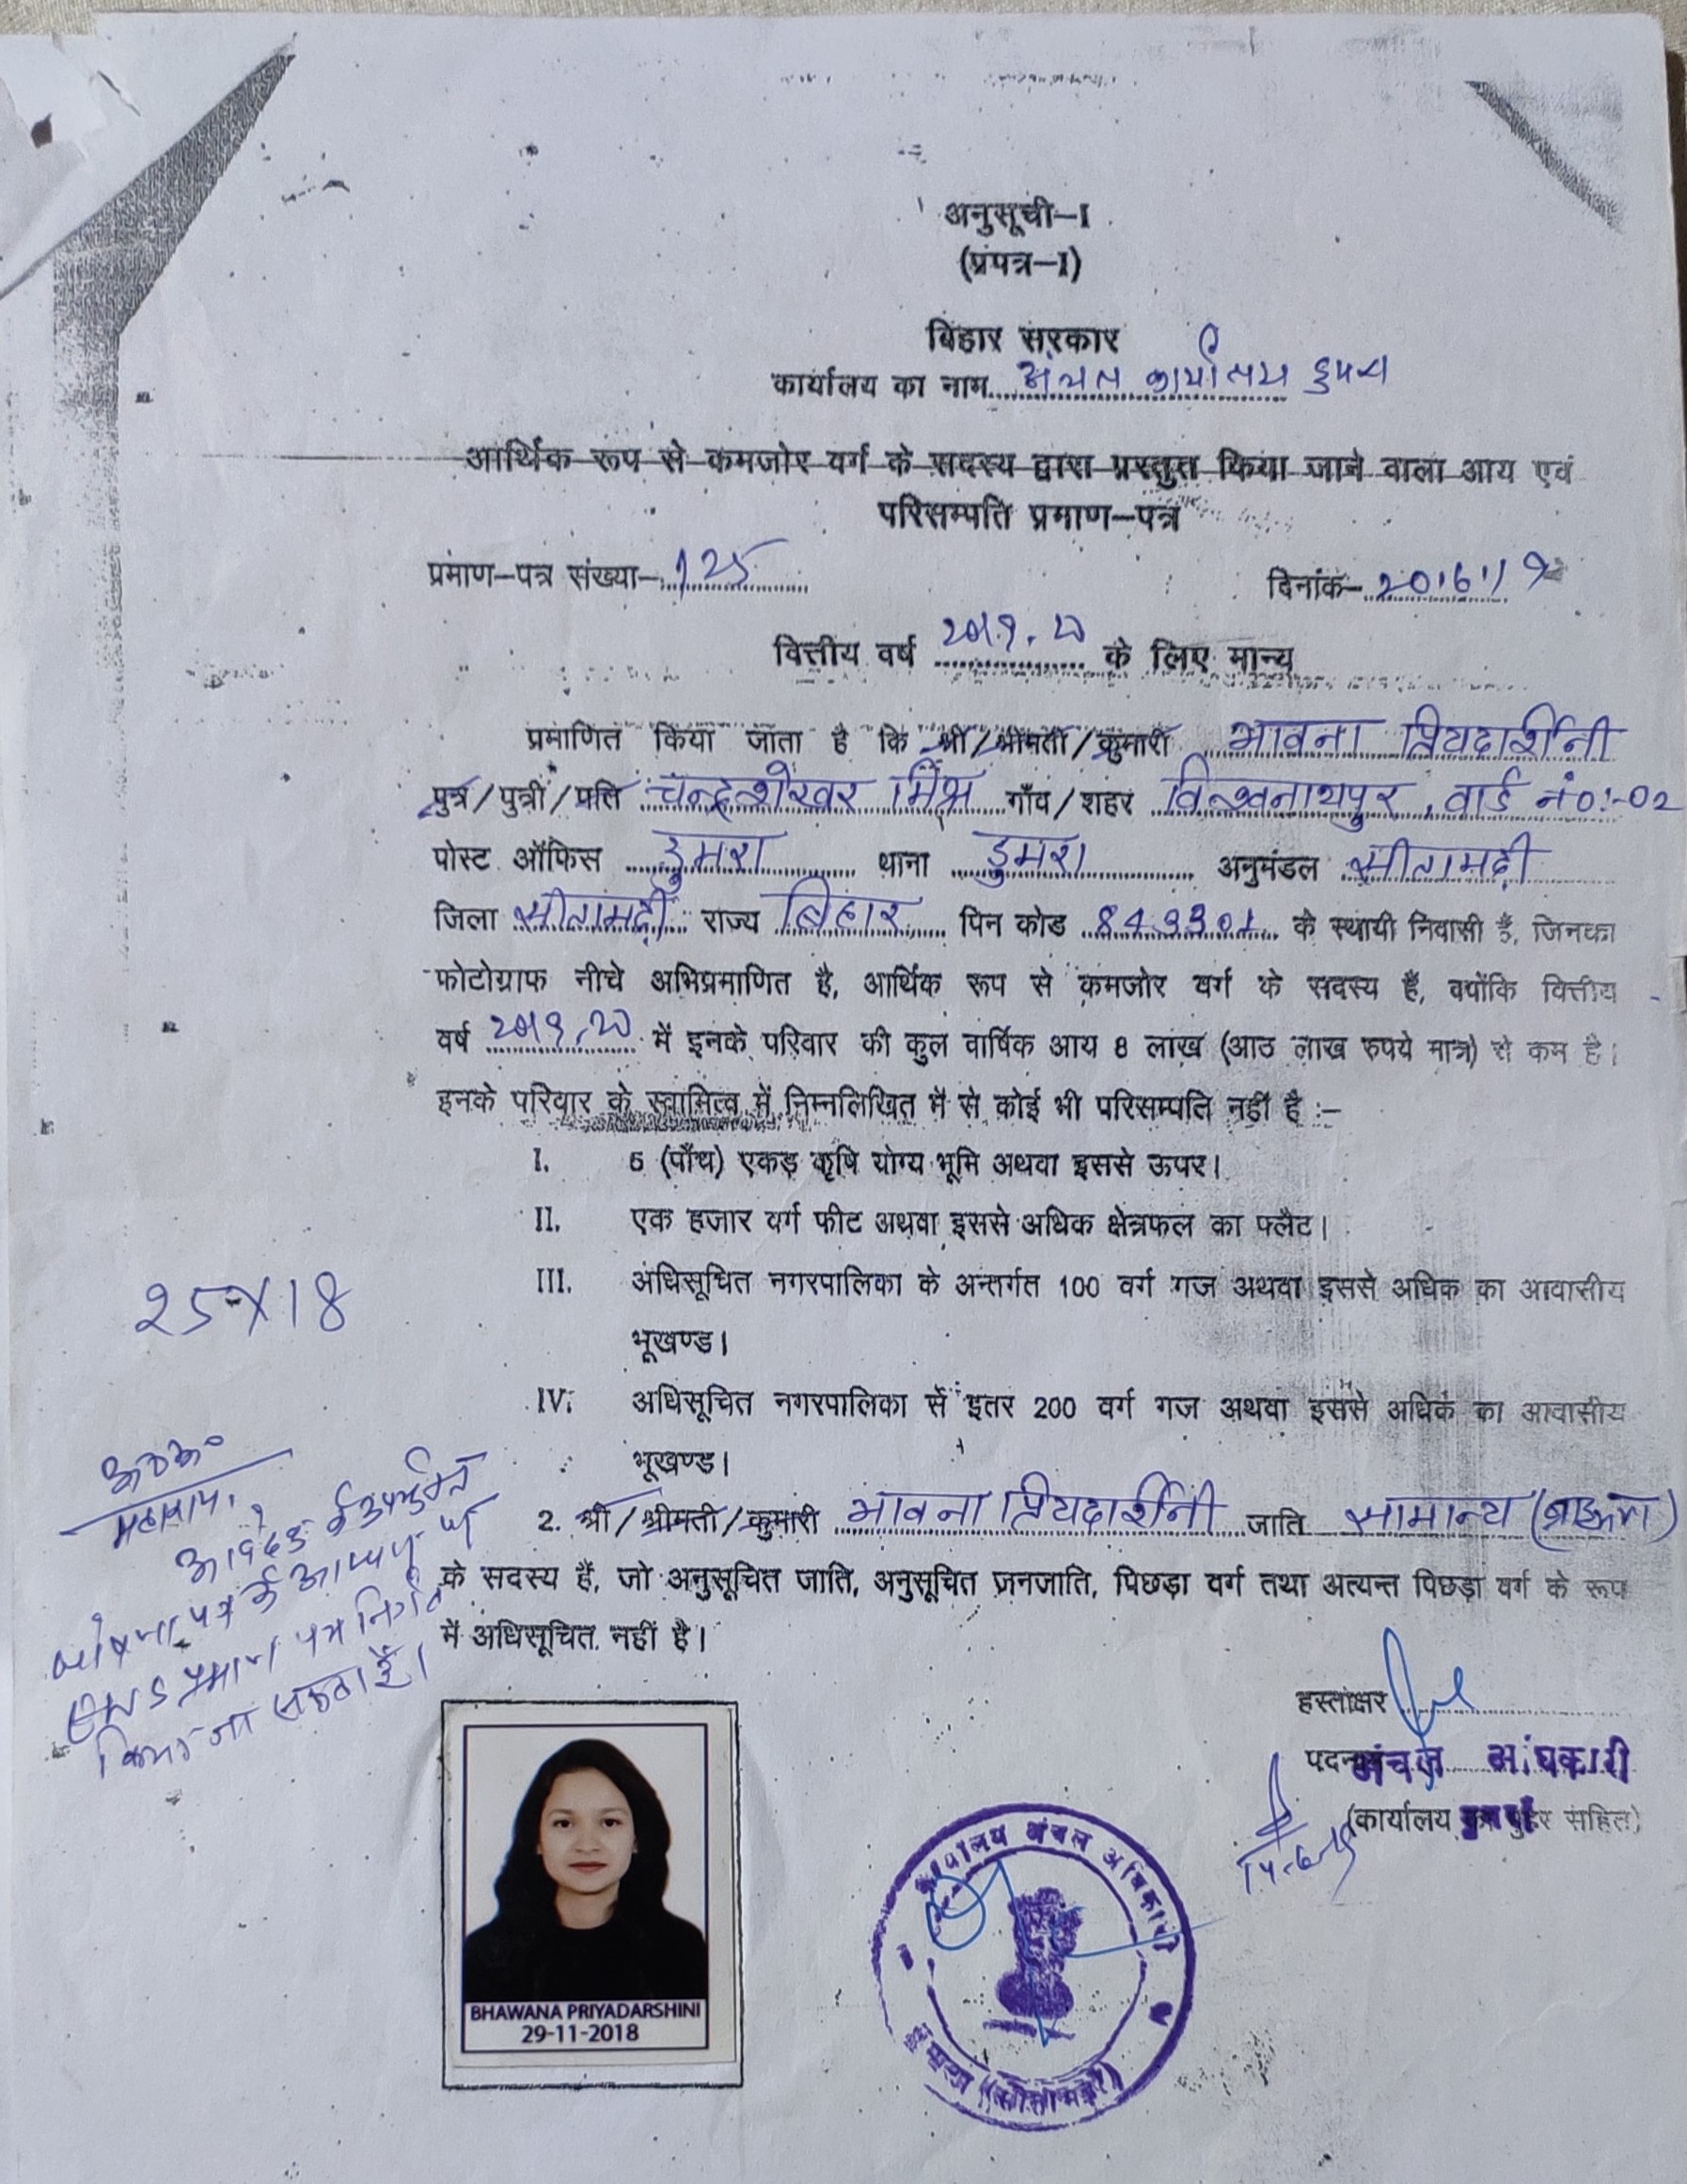 अनुसूची-I
(प्रपत्र-I)
बिहार सरकार
कार्यालय का नाम अंचल कार्यालय डुमरा
आर्थिक रूप से कमजोर वर्ग के सदस्य द्वारा प्रस्तुत किया जाने वाला आय एवं
परिसम्पति प्रमाण-पत्र
प्रमाण-पत्र संख्या- 125 दिनांक-
वित्तीय वर्ष 2019-20 के लिए मान्य
प्रमाणित किया जाता है कि श्री/श्रीमती/कुमारी भावना प्रियदर्शिनी
पुत्र/पुत्री/पति चन्द्रशेखर मिश्र गाँव/शहर विश्वनाथपुर, वार्ड नं०:-02
पोस्ट ऑफिस डुमरा थाना डुमरा अनुमंडल सीतामढ़ी
जिला सीतामढ़ी राज्य बिहार पिन कोड 843301 के स्थायी निवासी हैं, जिनका
फोटोग्राफ नीचे अभिप्रमाणित है, आर्थिक रूप से कमजोर वर्ग के सदस्य हैं, क्योंकि वित्तीय
वर्ष 2019-20 में इनके परिवार की कुल वार्षिक आय 8 लाख (आठ लाख रुपये मात्र) से कम है।
इनके परिवार के स्वामित्व में निम्नलिखित में से कोई भी परिसम्पति नहीं है :-
I. 5 (पाँच) एकड़ कृषि योग्य भूमि अथवा इससे ऊपर।
II. एक हजार वर्ग फीट अथवा इससे अधिक क्षेत्रफल का फ्लैट।
III. अधिसूचित नगरपालिका के अन्तर्गत 100 वर्ग गज अथवा इससे अधिक का आवासीय
भूखण्ड।
25X18
IV. अधिसूचित नगरपालिका से इतर 200 वर्ग गज अथवा इससे अधिक का आवासीय
भूखण्ड।
2. श्री/श्रीमती/कुमारी भावना प्रियदर्शिनी जाति सामान्य (ब्राह्मण)
के सदस्य हैं, जो अनुसूचित जाति, अनुसूचित जनजाति, पिछड़ा वर्ग तथा अत्यन्त पिछड़ा वर्ग के रूप
में अधिसूचित नहीं है।
महाशय,
घोषणा पत्र के
प्रमाण पत्र निर्गत
किया जा सकता है।
हस्ताक्षर
अंचल अधिकारी
डुमरा
(कार्यालय का मुहर सहित)
14-6-19
BHAWANA PRIYADARSHINI
29-11-2018
कार्यालय अंचल अधिकारी
डुमरा (सीतामढ़ी)